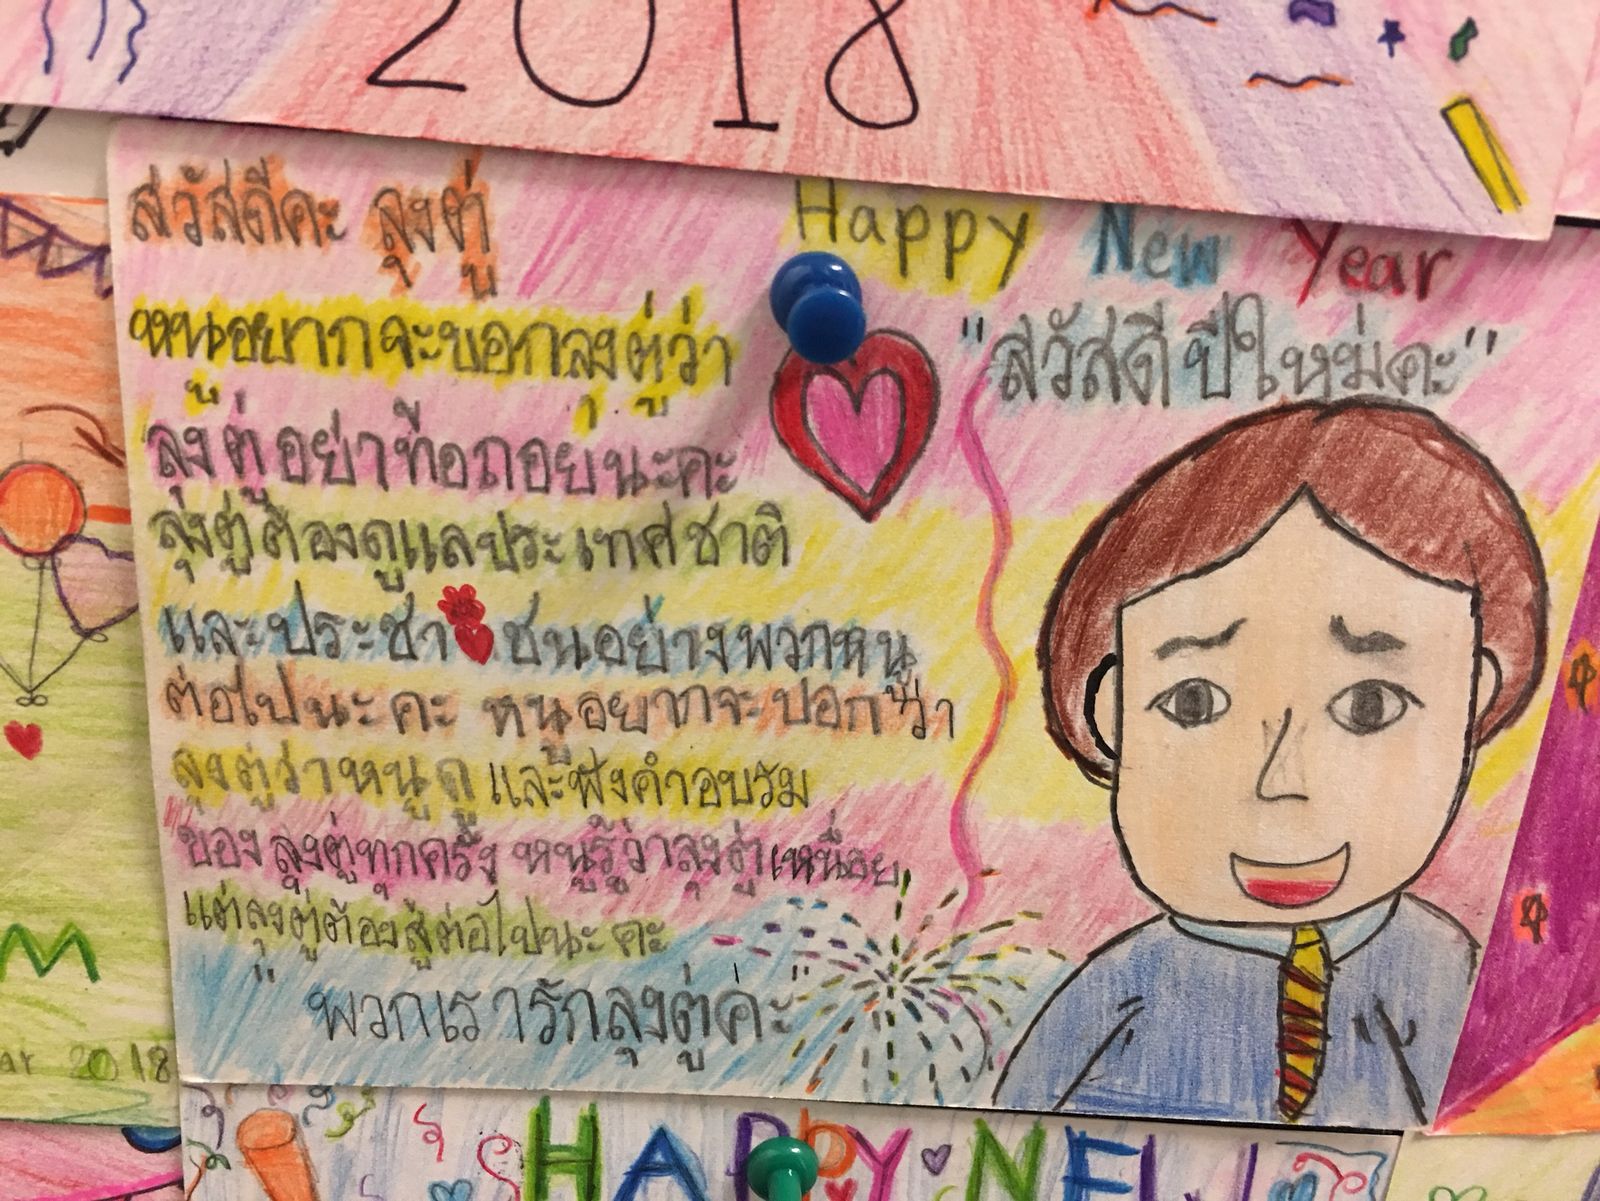 2018
สวัสดีคะ ลุงตู่
Happy New Year
"สวัสดี ปีใหม่คะ"
หนูอยากจะบอกลุงตู่ว่า
ลุงตู่อย่าท้อถอยนะคะ
ลุงตู่ต้องดูแลประเทศชาติ
และประชาชนอย่างพวกหนู
ต่อไปนะคะ หนูอยากจะบอกว่า
ลุงตู่ว่าหนูดู และฟังคำอบรม
ของลุงตู่ทุกครั้ง หนูรู้ว่าลุงตู่เหนื่อย
แต่ลุงตู่ต้องสู้ต่อไปนะคะ
"พวกเรารักลุงตู่ค่ะ"
ar 2018
HAPPY NEW